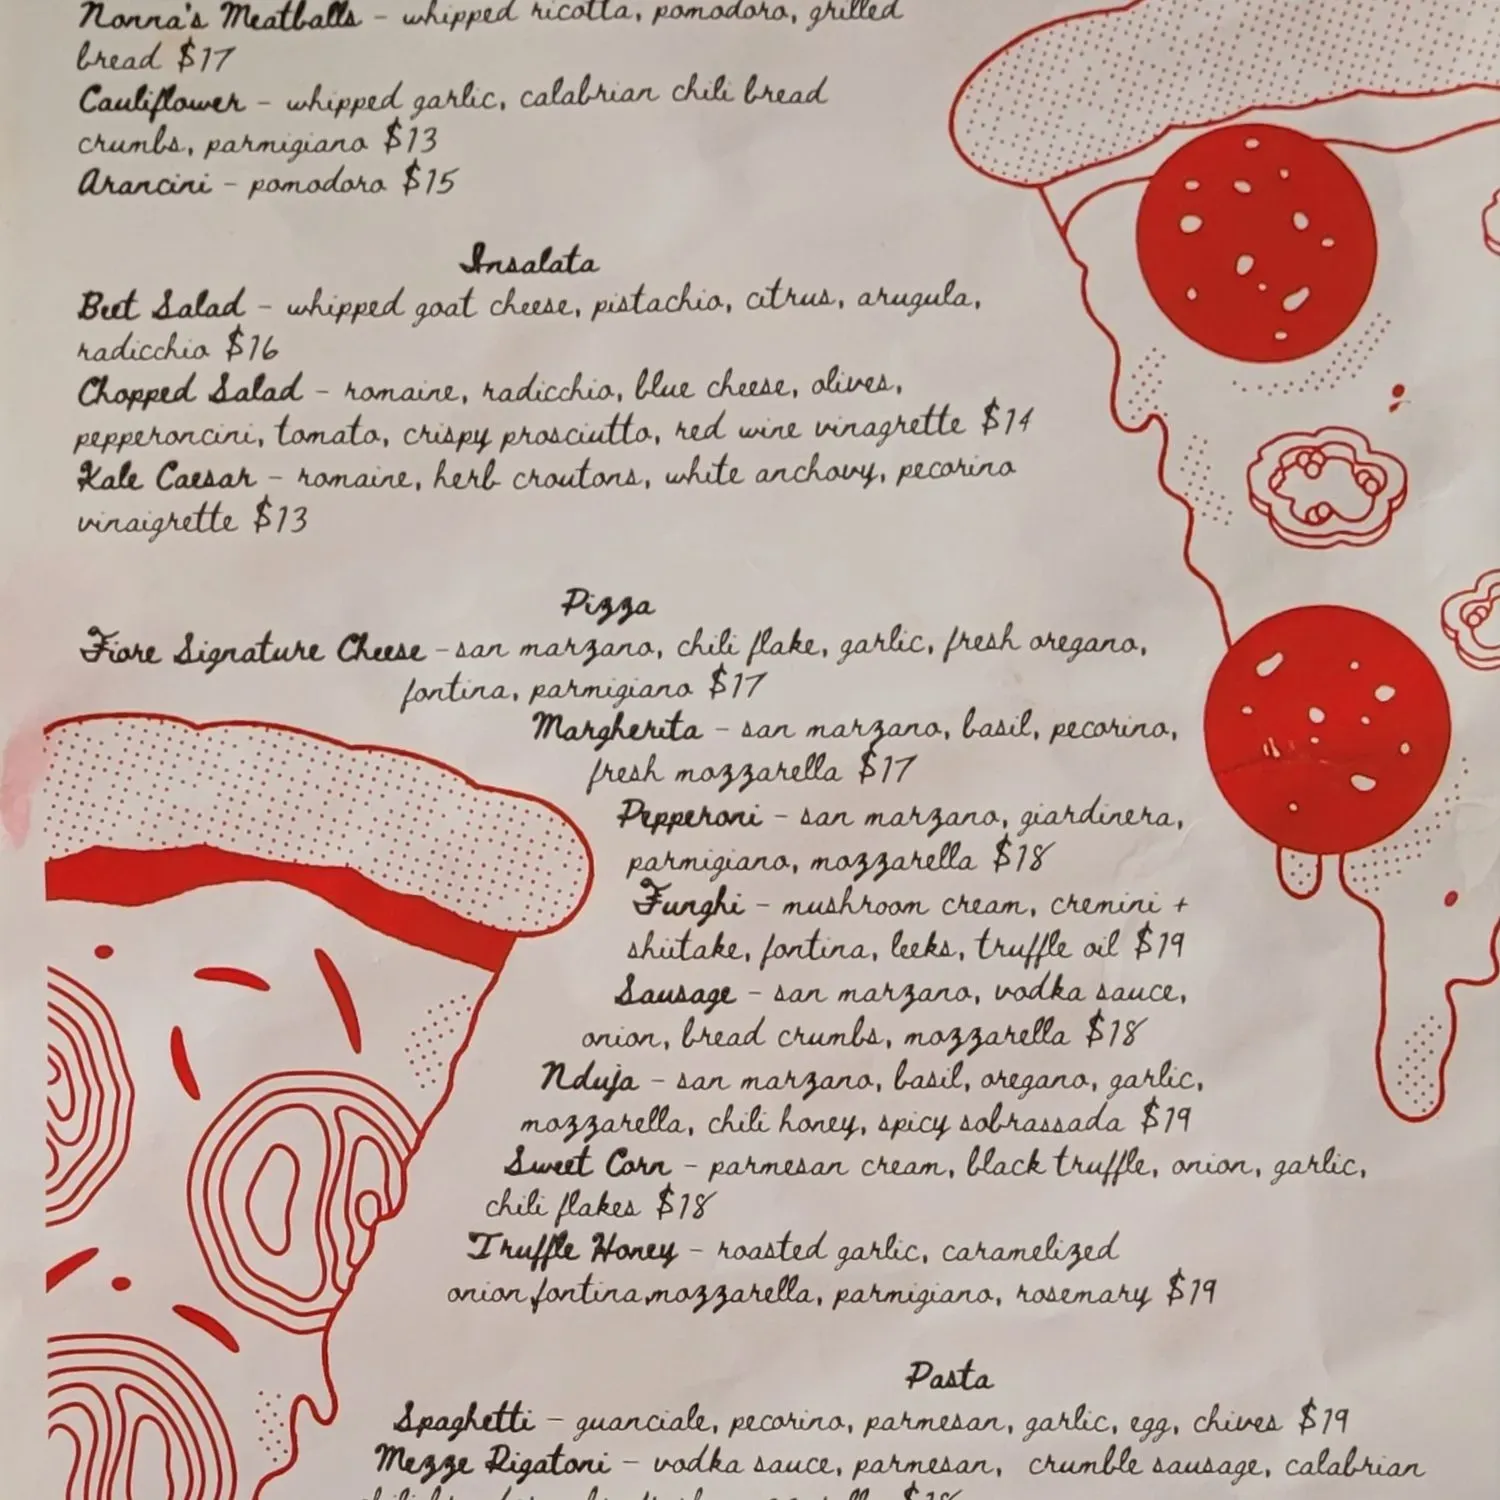 Nonna's Meatballs - whipped ricotta, pomodoro, grilled
bread $17
Cauliflower - whipped garlic, calabrian chili bread
crumbs, parmigiano $13
Arancini - pomodoro $15
Insalata
Beet Salad - whipped goat cheese, pistachio, citrus, arugula,
radicchio $16
Chopped Salad - romaine, radicchio, blue cheese, olives,
pepperoncini, tomato, crispy prosciutto, red wine vinagrette $14
Kale Caesar - romaine, herb croutons, white anchovy, pecorino
vinaigrette $13
Pizza
Fiore Signature Cheese - san marzano, chili flake, garlic, fresh oregano,
fontina, parmigiano $17
Margherita - san marzano, basil, pecorino,
fresh mozzarella $17
Pepperoni - san marzano, giardinera,
parmigiano, mozzarella $18
Funghi - mushroom cream, cremini +
shiitake, fontina, leeks, truffle oil $19
Sausage - san marzano, vodka sauce,
onion, bread crumbs, mozzarella $18
Nduja - san marzano, basil, oregano, garlic,
mozzarella, chili honey, spicy sobrassada $19
Sweet Corn - parmesan cream, black truffle, onion, garlic,
chili flakes $18
Truffle Honey - roasted garlic, caramelized
onion,fontina,mozzarella, parmigiano, rosemary $19
Pasta
Spaghetti - guanciale, pecorino, parmesan, garlic, egg, chives $19
Mezze Rigatoni - vodka sauce, parmesan, crumble sausage, calabrian